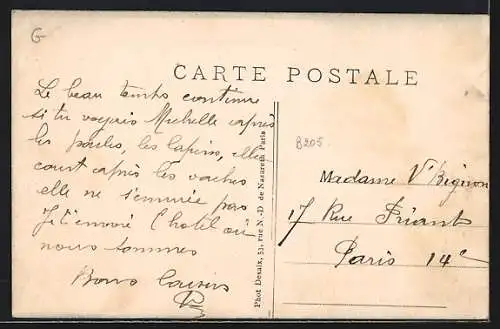 G
CARTE POSTALE
Le beau temps continue
si tu voyais Michelle après
les poules, les lapins, elle
court après les vaches
elle ne s'ennuie pas
Je t'envoie l'hotel où
nous sommes
Bons baisers
Phot Desaix, 53, rue N.-D. de Nazareth Paris
8205
Madame Vve Bignon
17 Rue Friant
Paris 14e